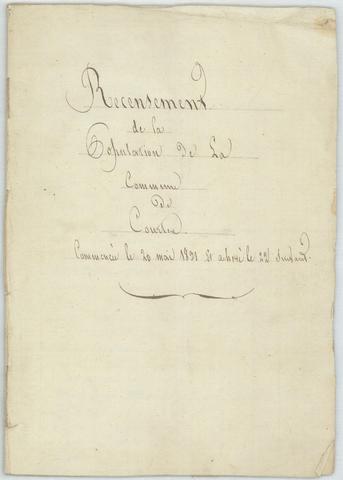 Recensement
de la
Population De La
Commune
De
Commencée le 20 mai 1831 et achevé le 22 suivant.